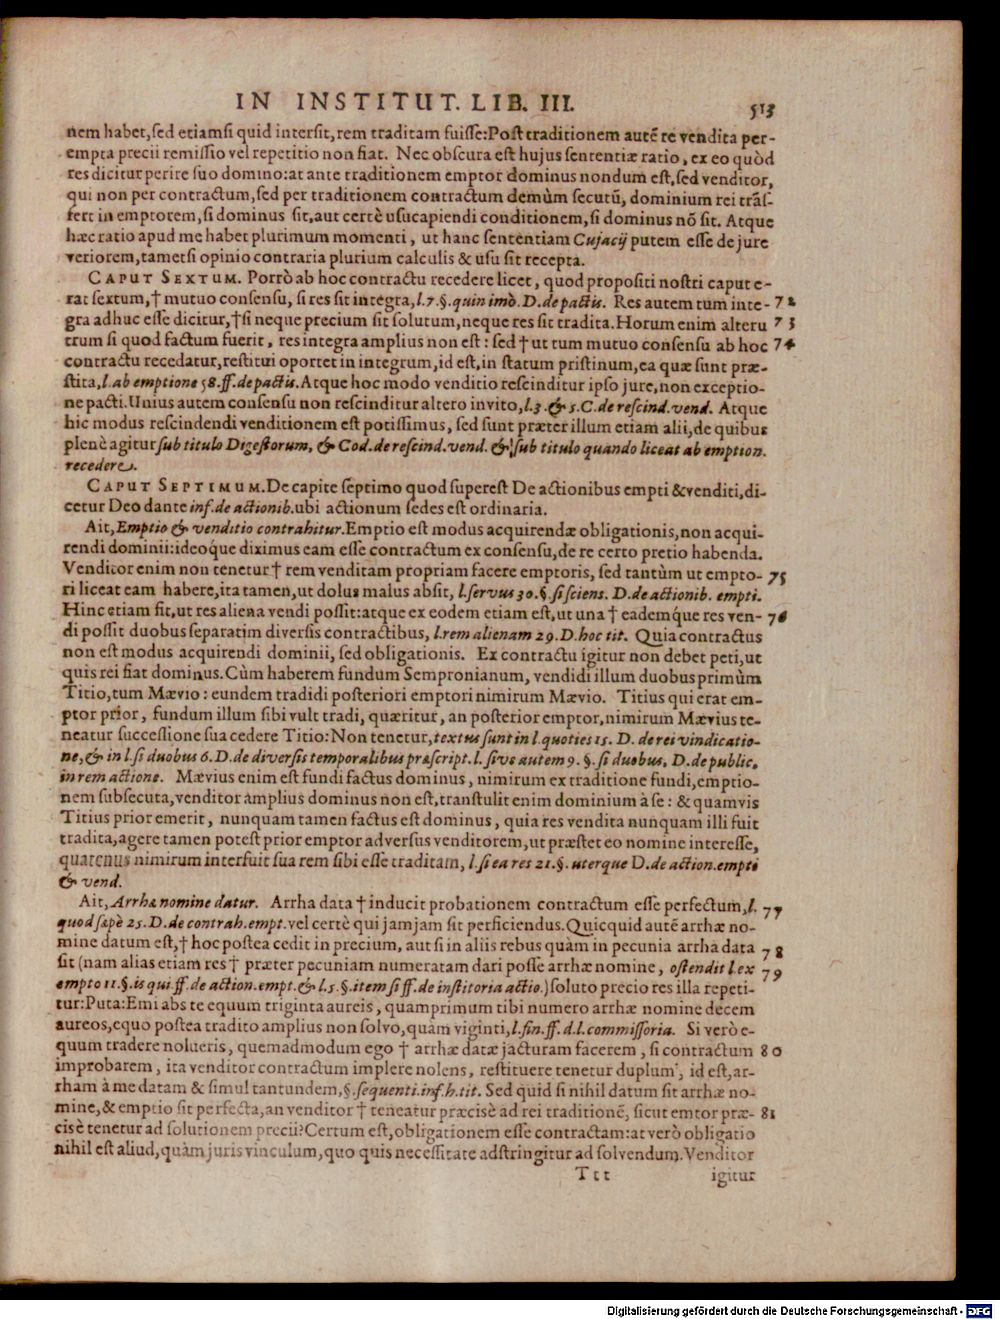 IN INSTITUT. LIB. III. 513
nem habet, sed etiamsi quid intersit, rem traditam fuisse: Post traditionem autē re vendita per-
empta precii remissio vel repetitio non fiat. Nec obscura est hujus sententiæ ratio, ex eo quòd
res dicitur perire suo domino: at ante traditionem emptor dominus nondum est, sed venditor,
qui non per contractum, sed per traditionem contractum demùm secutū, dominium rei trās-
fert in emptorem, si dominus sit, aut certè usucapiendi conditionem, si dominus nō sit. Atque
hæc ratio apud me habet plurimum momenti, ut hanc sententiam Cujacij putem esse de jure
veriorem, tametsi opinio contraria plurium calculis & usu sit recepta.
CAPUT SEXTUM. Porrò ab hoc contractu recedere licet, quod propositi nostri caput e-
rat sextum, † mutuo consensu, si res sit integra, l. 7. §. quin imò. D. de pactis. Res autem tum inte- 72
gra adhuc esse dicitur, † si neque precium sit solutum, neque res sit tradita. Horum enim alteru 73
trum si quod factum fuerit, res integra amplius non est: sed † ut tum mutuo consensu ab hoc 74
contractu recedatur, restitui oportet in integrum, id est, in statum pristinum, ea quæ sunt præ-
stita, l. ab emptione 58. ff. de pactis. Atque hoc modo venditio rescinditur ipso jure, non exceptio-
ne pacti. Unius autem consensu non rescinditur altero invito, l. 3. & 5. C. de rescind. vend. Atque
hic modus rescindendi venditionem est potissimus, sed sunt præter illum etiam alii, de quibus
plenè agitur sub titulo Digestorum, & Cod. de rescind. vend. & sub titulo quando liceat ab emption.
recedere.
CAPUT SEPTIMUM. De capite septimo quod superest De actionibus empti & venditi, di-
cetur Deo dante inf. de actionib. ubi actionum sedes est ordinaria.
Ait, Emptio & venditio contrahitur. Emptio est modus acquirendæ obligationis, non acqui-
rendi dominii: ideoq́ue diximus eam esse contractum ex consensu, de re certo pretio habenda.
Venditor enim non tenetur † rem venditam propriam facere emptoris, sed tantùm ut empto- 75
ri liceat eam habere, ita tamen, ut dolus malus absit, l. servus 30. §. si sciens. D. de actionib. empti.
Hinc etiam fit, ut res aliena vendi possit: atque ex eodem etiam est, ut una † eademq́ue res ven- 76
di possit duobus separatim diversis contractibus, l. rem alienam 29. D. hoc tit. Quia contractus
non est modus acquirendi dominii, sed obligationis. Ex contractu igitur non debet peti, ut
quis rei fiat dominus. Cùm haberem fundum Sempronianum, vendidi illum duobus primùm
Titio, tum Mævio: eundem tradidi posteriori emptori nimirum Mævio. Titius qui erat em-
ptor prior, fundum illum sibi vult tradi, quæritur, an posterior emptor, nimirum Mævius te-
neatur successione sua cedere Titio: Non tenetur, textus sunt in l. quoties 15. D. de rei vindicatio-
ne, & in l. si duobus 6. D. de diversis temporalibus præscript. l. sive autem 9. §. si duobus. D. de public.
in rem actione. Mævius enim est fundi factus dominus, nimirum ex traditione fundi, emptio-
nem subsecuta, venditor amplius dominus non est, transtulit enim dominium à se: & quamvis
Titius prior emerit, nunquam tamen factus est dominus, quia res vendita nunquam illi fuit
tradita, agere tamen potest prior emptor adversus venditorem, ut præstet eo nomine interesse,
quatenus nimirum interfuit sua rem sibi esse traditam, l. si ea res 21. §. uterque D. de action. empti
& vend.
Ait, Arrhæ nomine datur. Arrha data † inducit probationem contractum esse perfectum, l. 77
quod sæpè 25. D. de contrah. empt. vel certè qui jamjam sit perficiendus. Quicquid autē arrhæ no-
mine datum est, † hoc postea cedit in precium, aut si in aliis rebus quàm in pecunia arrha data 78
sit (nam alias etiam res † præter pecuniam numeratam dari posse arrhæ nomine, ostendit l. ex 79
empto 11. §. is qui ff. de action. empt. & l. 5. §. item si ff. de institoria actio.) soluto precio res illa repeti-
tur: Puta: Emi abs te equum triginta aureis, quamprimum tibi numero arrhæ nomine decem
aureos, equo postea tradito amplius non solvo, quàm viginti, l. fin. ff. d. l. commissoria. Si verò e-
quum tradere nolueris, quemadmodum ego † arrhæ datæ jacturam facerem, si contractum 80
improbarem, ita venditor contractum implere nolens, restituere tenetur duplum, id est, ar-
rham à me datam & simul tantundem, §. sequenti. inf. h. tit. Sed quid si nihil datum sit arrhæ no-
mine, & emptio sit perfecta, an venditor † teneatur præcisè ad rei traditionē, sicut emtor præ- 81
cisè tenetur ad solutionem precii? Certum est, obligationem esse contractam: at verò obligatio
nihil est aliud, quàm juris vinculum, quo quis necessitate adstringitur ad solvendum. Venditor
Ttt igitur
Digitalisierung gefördert durch die Deutsche Forschungsgemeinschaft - DFG